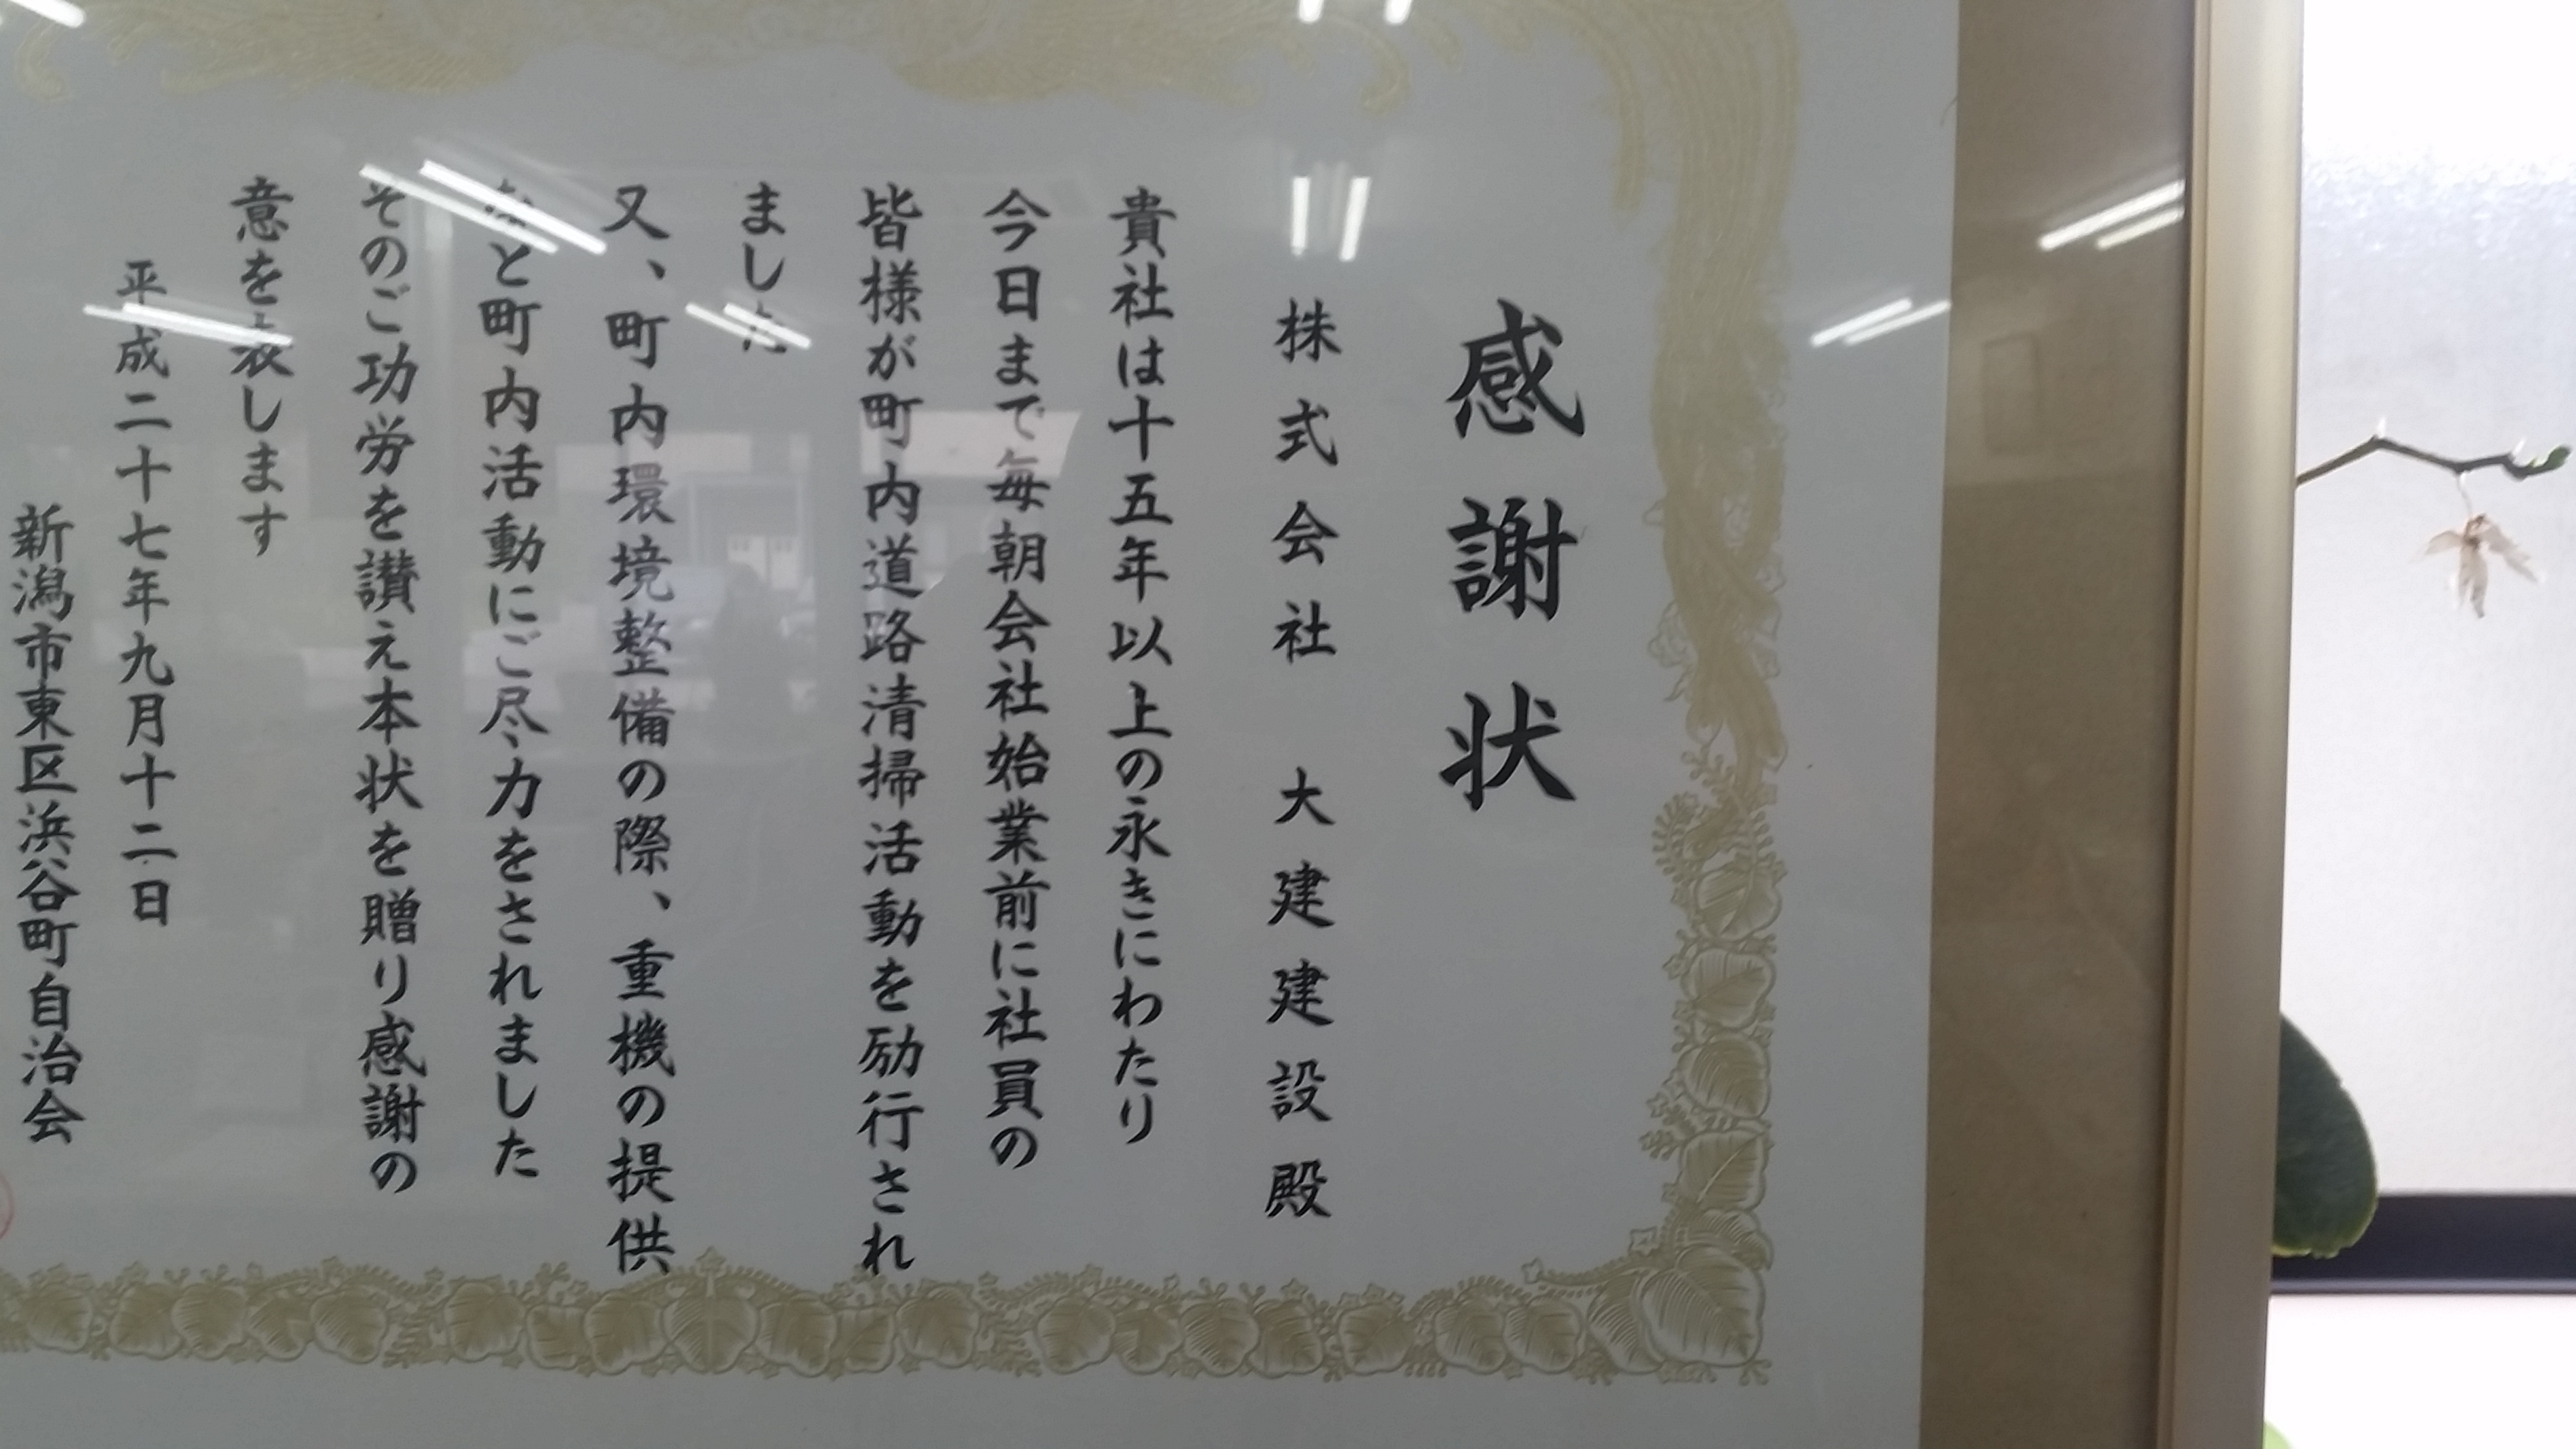 感謝状
株式会社 大建建設殿
貴社は十五年以上の永きにわたり
今日まで毎朝会社始業前に社員の
皆様が町内道路清掃活動を励行され
ました
又、町内環境整備の際、重機の提供
など町内活動にご尽力をされました
そのご功労を讃え本状を贈り感謝の
意を表します
平成二十七年九月十二日
新潟市東区浜谷町自治会